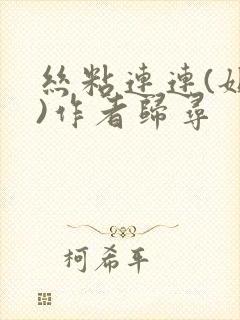 絲粘連連(
)作者歸尋
柯希平